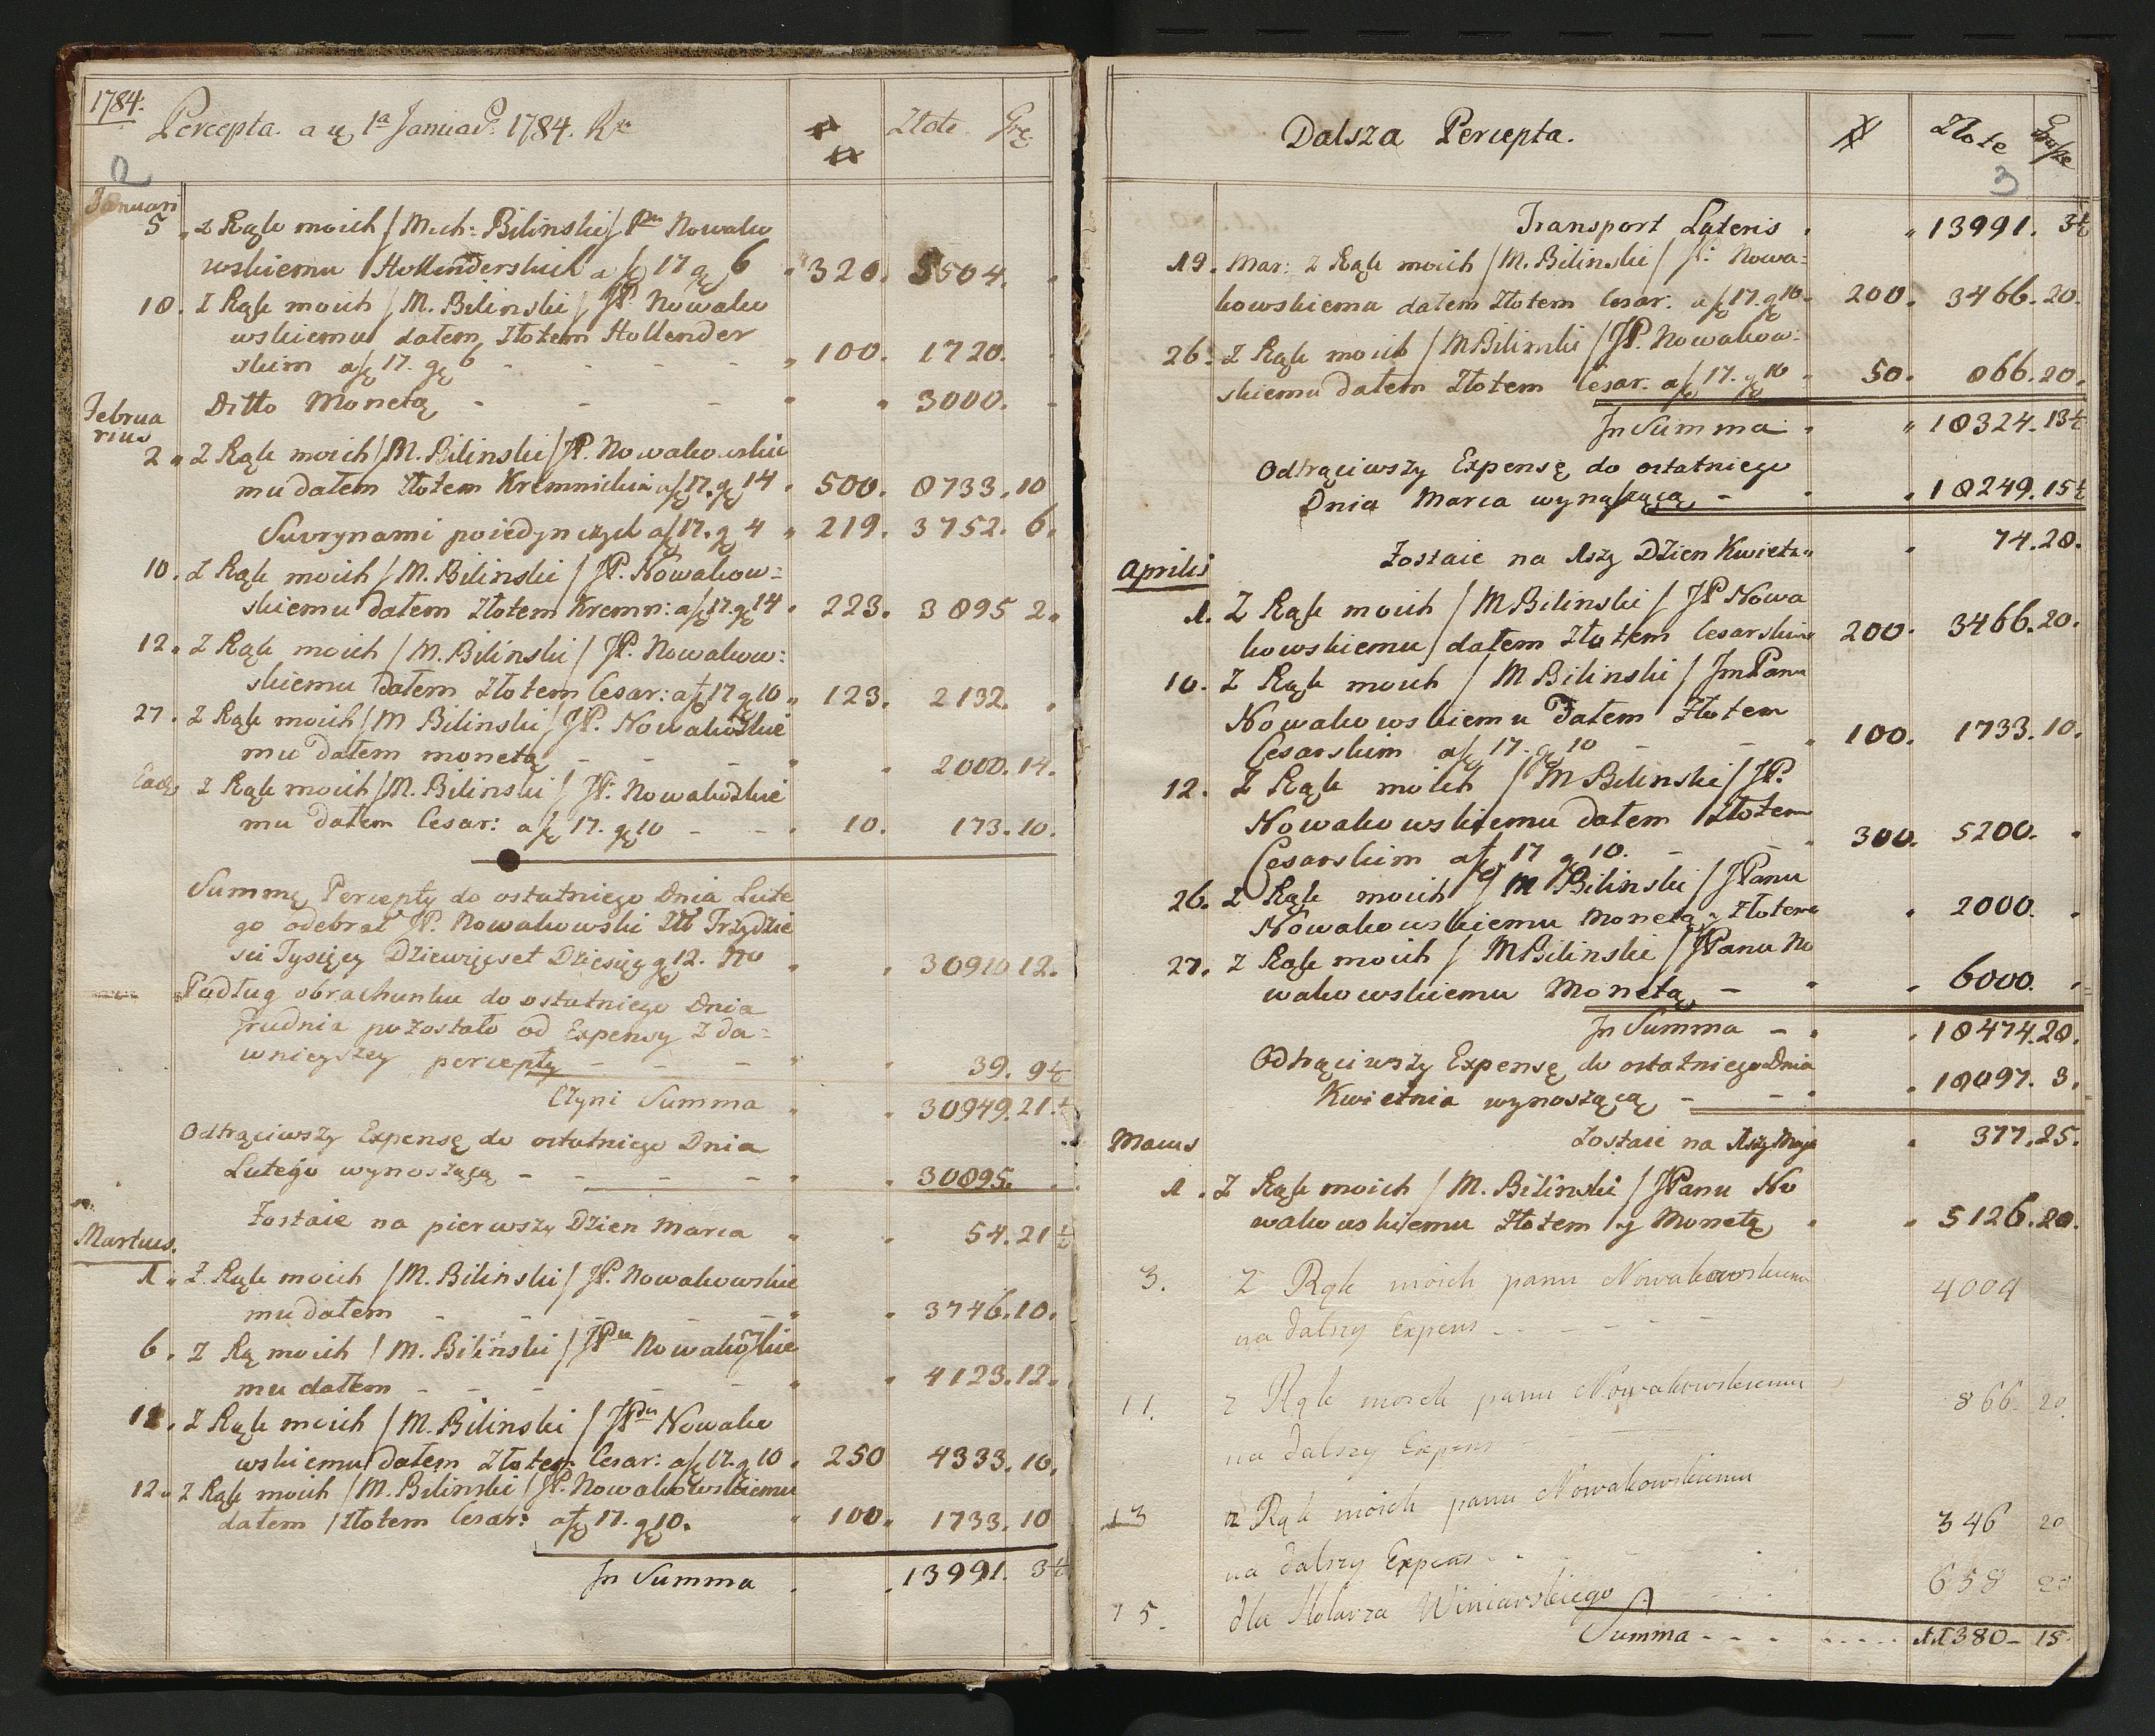 1784.
Percepta a q 1ª Januar: 1784. Złote Grę.
2
Januari
5 „ z Rąk moich / Mich: Bilinski / Pu Nowako
wskiemu Hollenderskich a fę 17 gę 6 „ 320. 5504.
10. Z Rąk moich / M. Bilinski / JP. Nowako
wskiemu dałem Złotem Hollender
skim a fę 17. gę 6 - - - „ 100. 1720.
Ditto Monetą - - - „ „ 3000.
Februa
rius
2 „ Z Rąk moich / M. Bilinski / JP. Nowakowskie
mu dałem Złotem Kremnickim a fę 17. gę 14 „ 500. 8733. 10
Suvrynami poiedynczych a fę 17. gę 4 „ 219. 3752. 6.
10. Z Rąk moich / M. Bilinski / JP. Nowakow=
skiemu dałem Złotem Kremn: a fę 17. gę 14 „ 223. 3895 2.
12. Z Rąk moich / M. Bilinski / JP. Nowakow:
skiemu dałem Złotem Cesar: a fę 17 gę 10 „ 123. 2132.
27. Z Rąk moich / M Bilinski / JP. Nowakoskie
mu dałem monetą - - - „ „ 2000. 14.
Eade Z Rąk moich / M. Bilinski / JP. Nowakoskie
mu dałem Cesar: a fę 17. gę 10 - - „ 10. 173. 10.
Summę Percepty do ostatniego Dnia Lute
go odebrał JP. Nowakowski Złł Trzydzie
sci Tysięcy Dziewięcset Dziesięc g 12. „ „ 30910 12.
Podług obrachunku do ostatniego Dnia
Grudnia pozostało od Expensy z da=
wnieyszey percepty - - - „ „ 39. 9½
Czyni Summa „ „ 30949. 21.½
Odtrąciwszy Expensę do ostatniego Dnia
Lutego wynoszącą - - - - „ „ 30895.
Zostaie na pierwszy Dzien Marca „ „ 54. 21½
Martius.
1 „ Z Rąk moich / M. Bilinski / JP. Nowakowskie
mu dałem - - - - „ „ 3746. 10.
6. Z Rą moich / M. Bilinski / JPu Nowakoskie
mu dałem - - - - „ „ 4123. 12.
12. Z Rąk moich / M. Bilinski / JPu Nowako
wskiemu dałem Złotem Cesar: a fę 17. gę 10 „ 250 4333. 10.
12 „ Z Rąk moich / M. Bilinski / JP. Nowakowskiemu
dałem Złotem Cesar: a fę 17. gę 10. „ 100. 1733. 10
In Summa „ „ 13991. 3½
Dalsza Percepta. Złote Grosze
3
Transport Lateris „ „ 13991. 3½
19. Mar: Z Rąk moich / M. Bilinski / P: Nowa:
kowskiemu dałem Złotem Cesar. a fę 17. gę 10. 200. 3466. 20.
26. Z Rąk moich / M Bilinski / JP. Nowakow:
skiemu dałem Złotem Cesar. a fę 17. gę 10 „ 50. 866. 20.
In Summa „ „ 18324. 13½
Odtrąciwszy Expensę do ostatniego
Dnia Marca wynaszącą - „ „ 18249. 15½
Zostaie na 1szy Dzien Kwietn: „ 74. 28.
Aprilis
1. Z Rąk moich / M Bilinski / JP Nowa
kowskiemu dałem Złotem Cesarskim 200. 3466. 20.
10. Z Rąk moich / M Bilinski / Jm Panu
Nowakowskiemu Dałem Złotem
Cesarskim a fę 17. gę 10 - - „ 100. 1733. 10.
12. Z Rąk moich / M Bilinski / JP.
Nowakowskiemu dałem Złotem
Cesarskim a fę 17 g 10. - - „ 300. 5200.
26. Z Rąk moich / M Bilinski / JPanu
Nowakowskiemu Monetą y Złotem „ 2000.
27. Z Rąk moich / M Bilinski / JPanu No
wakowskiemu Monetą - „ „ 6000.
In Summa - „ „ 18474. 28.
Odtrąciwszy Expensę do ostatniego Dnia
Kwietnia wynoszącą - - „ „ 18097. 3.
Zostaie na 1szy Maja „ 377. 25.
Maius
1. Z Rąk moich / M. Bilinski / JPanu No
wakowskiemu Złotem y Monetą „ „ 5126. 20.
3. Z Rąk moich panu Nowakowskiemu 4004
na dalszy Expens - - - - -
11. z Rąk moich panu Nowakowskiemu 866. 20.
na dalszy Expens
13 z Rąk moich panu Nowakowskiemu 346 20
na dalszy Expens - -
15. dla Stolarza Winiarskiego 658 20
Summa - - - 11380 - 15.